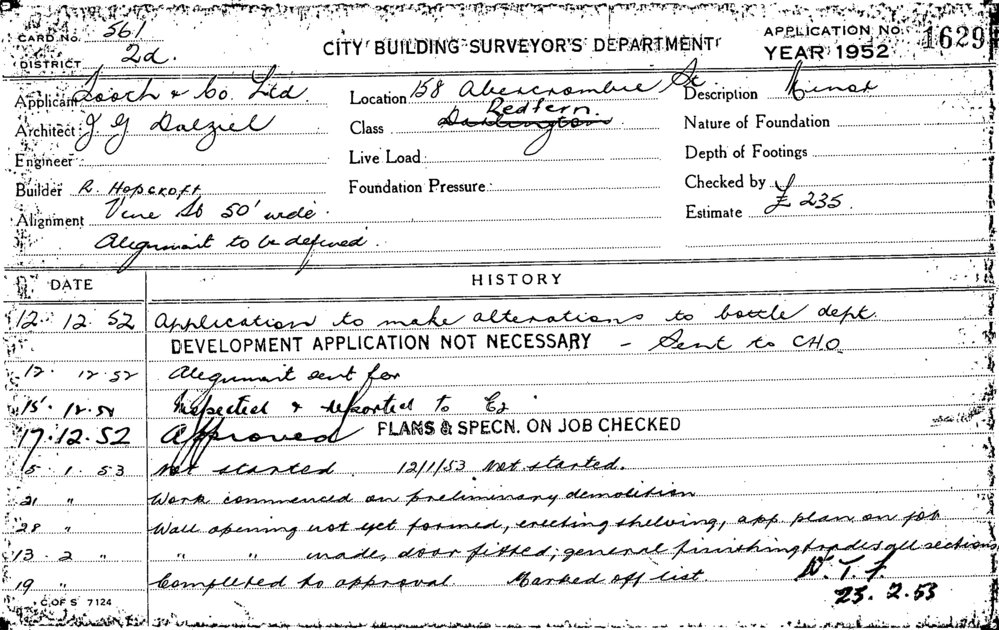 CARD No. 561
DISTRICT 2d.
CITY BUILDING SURVEYOR'S DEPARTMENT
APPLICATION No. 1629
YEAR 1952
Applicant Tooth & Co. Ltd
Location 158 Abercrombie St
Description Minor
Redfern.
Architect J G Dalziel
Class Darlington
Nature of Foundation
Engineer
Live Load
Depth of Footings
Builder R. Hopcroft
Foundation Pressure
Checked by
Alignment Vine St 50' wide.
Estimate £ 235.
Alignment to be defined.
DATE HISTORY
12. 12. 52 Application to make alterations to bottle dept.
DEVELOPMENT APPLICATION NOT NECESSARY - Sent to CHO
12. 12.52 Alignment sent for
15. 12.52 Inspected & reported to
17.12.52 Approved PLANS & SPECN. ON JOB CHECKED
5. 1. 53 Not started 12/1/53 Not started.
21 " Work commenced on preliminary demolition
28 " Wall opening not yet formed, erecting shelving, app. plan on job
13. 2 " " " made, door fitted, general finishing trades all sections
19 " Completed to approval Marked off list. W.T.F
23. 2.53
C OF S 7124